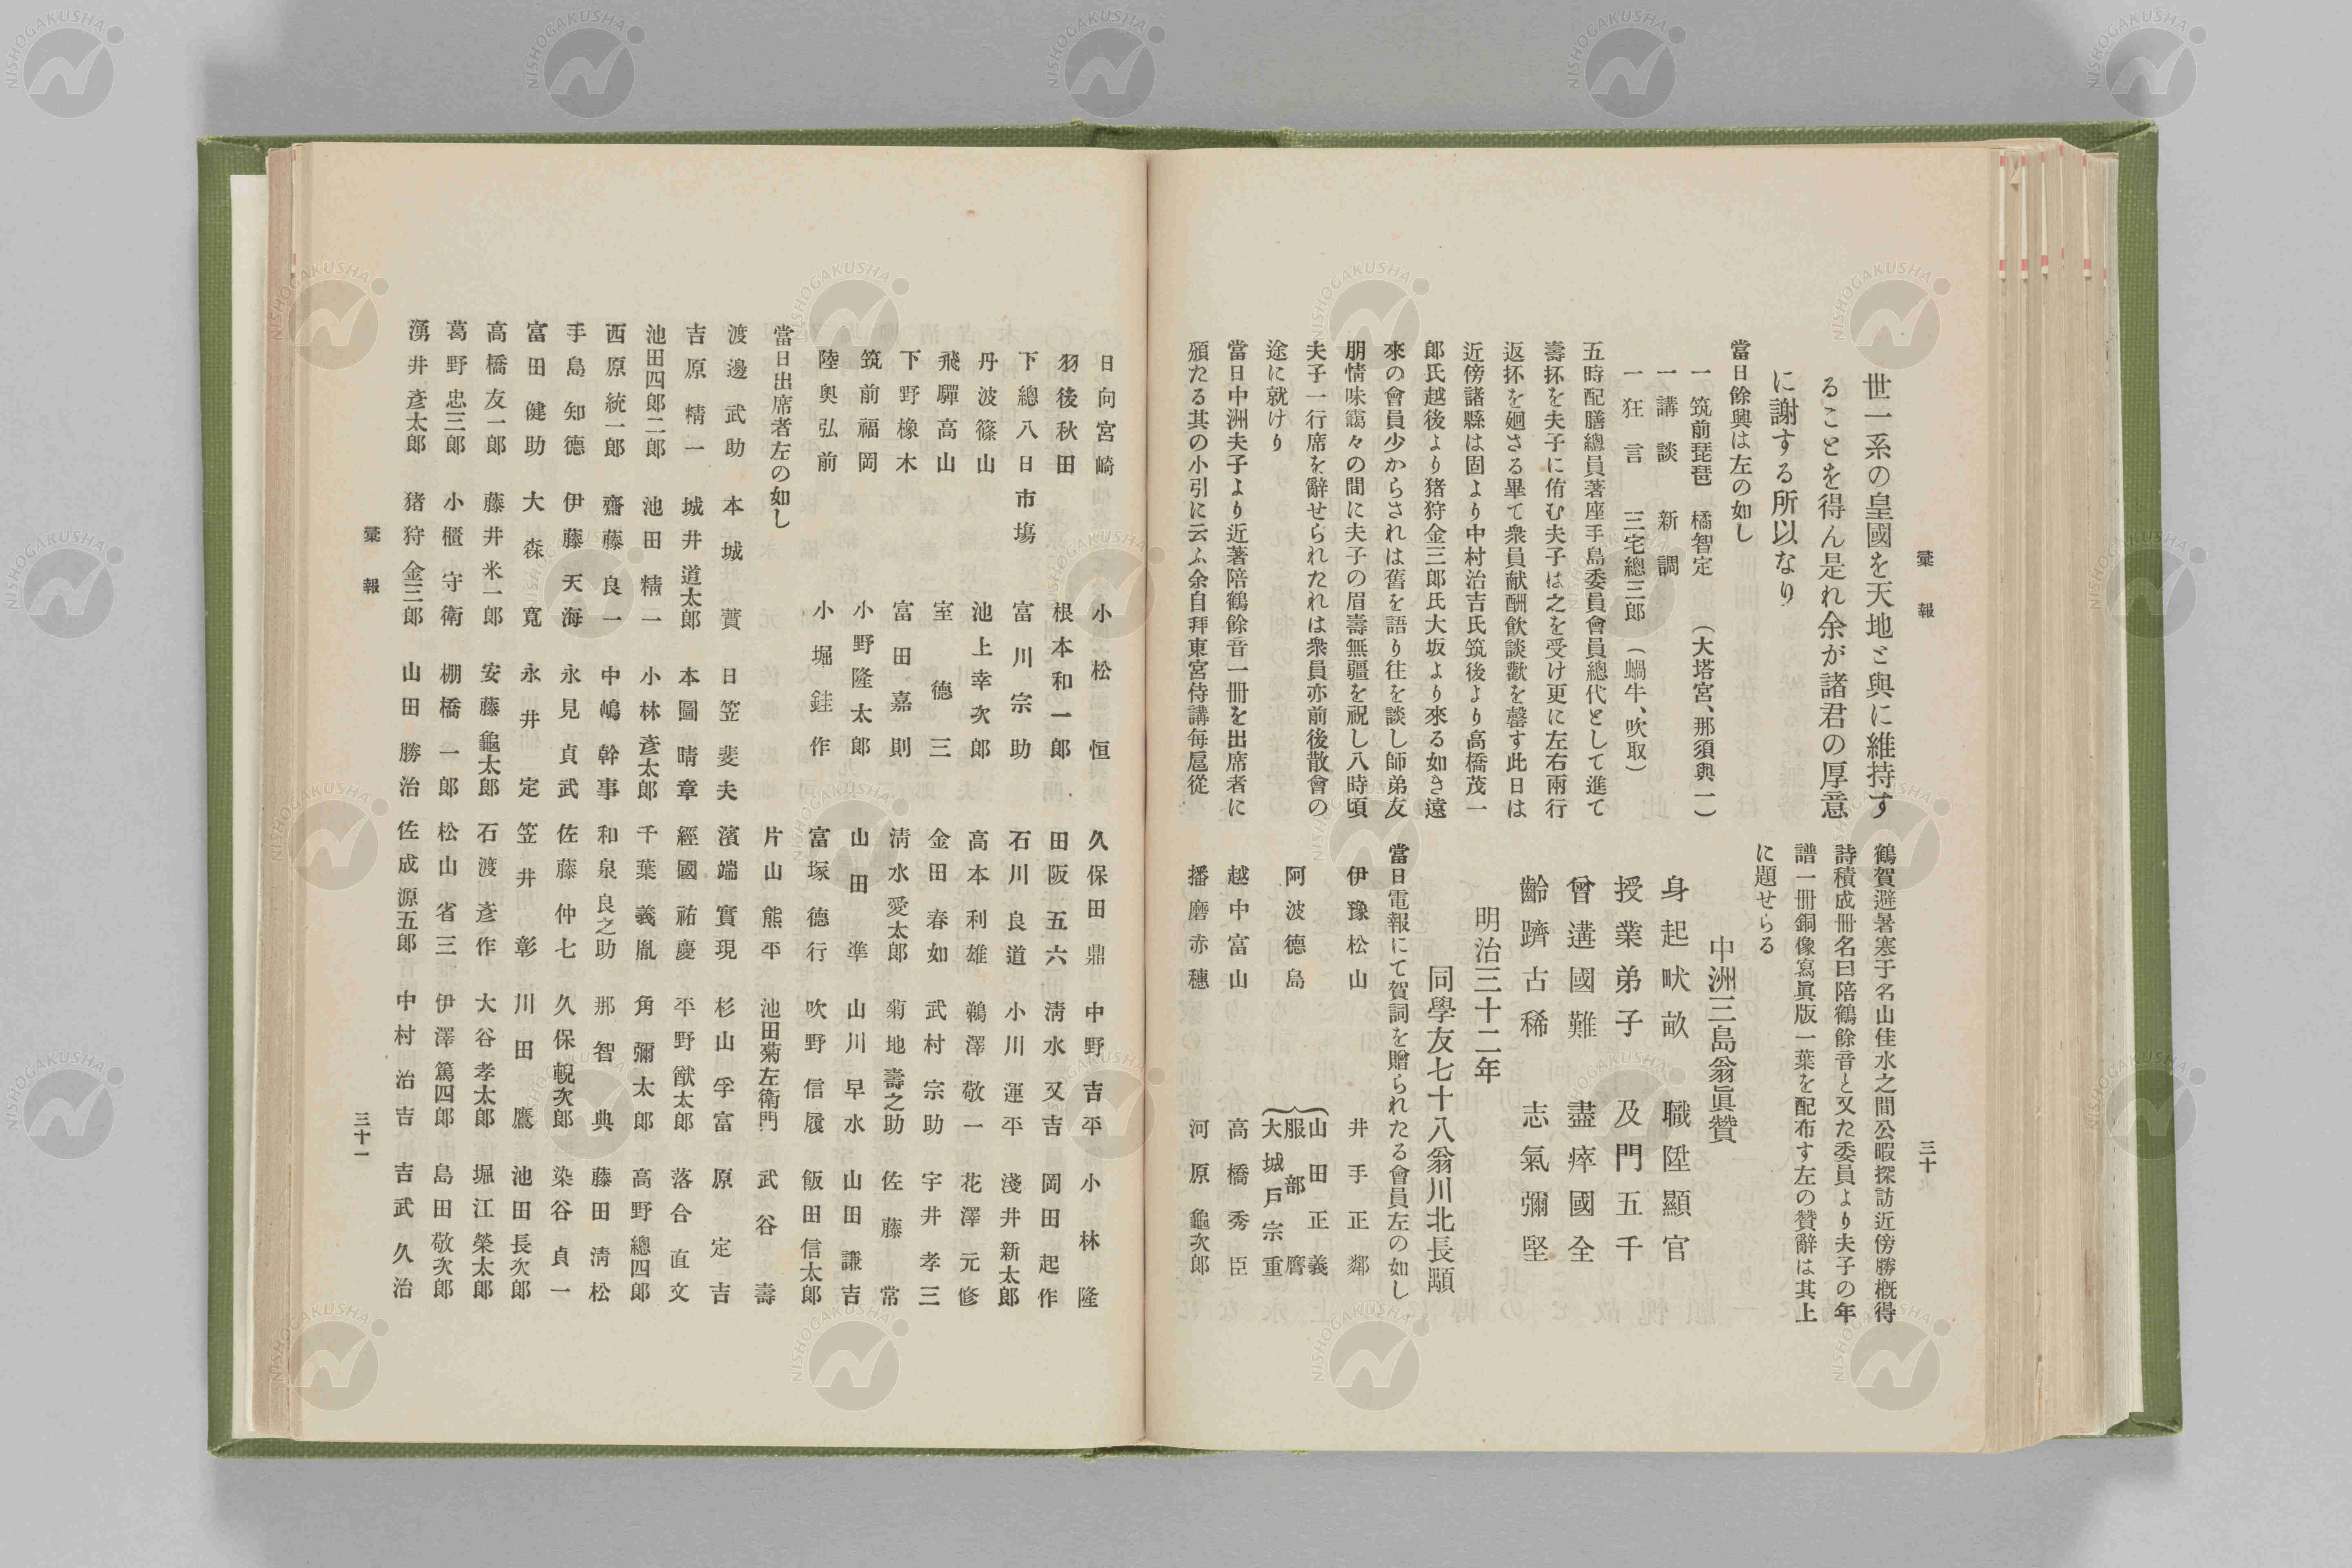 彙報
三十
世一系の皇國を天地と與に維持す
ることを得ん是れ余が諸君の厚意
に謝する所以なり
當日餘興は左の如し
一筑前琵琶 橘智定 (大塔宮、那須與一)
一講談 新調
一狂言 三宅總三郎 (蝸牛、吹取)
五時配膳總員著座手島委員會員總代として進て
壽抔を夫子に侑む夫子は之を受け更に左右兩行
返抔を廻さる畢て衆員献酬飲談歡を罄す此日は
近傍諸縣は固より中村治吉氏筑後より高橋茂一
郎氏越後より猪狩金三郎氏大坂より來る如き遠
來の會員少からされは舊を語り往を談し師弟友
朋情味靄々の間に夫子の眉壽無疆を祝し八時頃
夫子一行席を辭せられたれは衆員亦前後散會の
途に就けり
當日中洲夫子より近著陪鶴餘音一冊を出席者に
頒たる其の小引に云ふ余自拜東宮侍講毎扈從
鶴賀避暑寒于名山佳水之間公暇探訪近傍勝概得
詩積成冊名曰陪鶴餘音と又た委員より夫子の年
譜一冊銅像寫眞版一葉を配布す左の贊辭は其上
に題せらる
中洲三島翁眞贊
身起畎畝 職陞顯官
授業弟子 及門五千
曾遘國難 盡瘁國全
齡躋古稀 志氣彌堅
明治三十二年
同學友七十八翁川北長顒
當日電報にて賀詞を贈られたる會員左の如し
伊豫松山 井手正鄰
阿波德島 山田正義
服部膺
大城戸宗重
越中富山 高橋秀臣
播磨赤穗 河原龜次郎
日向宮崎 小松恒
羽後秋田 根本和一郎
下總八日市塲 富川宗助
丹波篠山 池上幸次郎
飛驒高山 室德三
下野橡木 富田嘉則
筑前福岡 小野隆太郎
陸奥弘前 小堀銈作
當日出席者左の如し
渡邊武助 本城蕡 日笠斐夫 濱端實現 杉山孚富 原定吉
吉原精一 城井道太郎 本圖晴章 經國祐慶 平野猷太郎 落合直文
池田四郎二郎 池田精一 小林彥太郎 千葉義胤 角彌太郎 高野總四郎
西原統一郎 齋藤良一 中嶋幹事 和泉良之助 那智典 藤田淸松
手島知德 伊藤天海 永見貞武 佐藤仲七 久保輗次郎 染谷貞一
富田健助 大森寬 永井定 笠井彰 川田鷹 池田長次郎
高橋友一郎 藤井米一郎 安藤龜太郎 石渡彥作 大谷孝太郎 堀江榮太郎
葛野忠三郎 小櫃守衛 棚橋一郎 松山省三 伊澤篤四郎 島田敬次郎
湧井彥太郎 猪狩金三郎 山田勝治 佐成源五郎 中村治吉 吉武久治
久保田鼎 中野吉平 小林隆
田阪五六 淸水又吉 岡田起作
石川良道 小川運平 淺井新太郎
高本利雄 鵜澤敬一 花澤元修
金田春如 武村宗助 宇井孝三
淸水愛太郎 菊地壽之助 佐藤常
山田準 山川早水 山田謙吉
富塚德行 吹野信履 飯田信太郎
片山熊平 池田菊左衛門 武谷壽
彙報
三十一